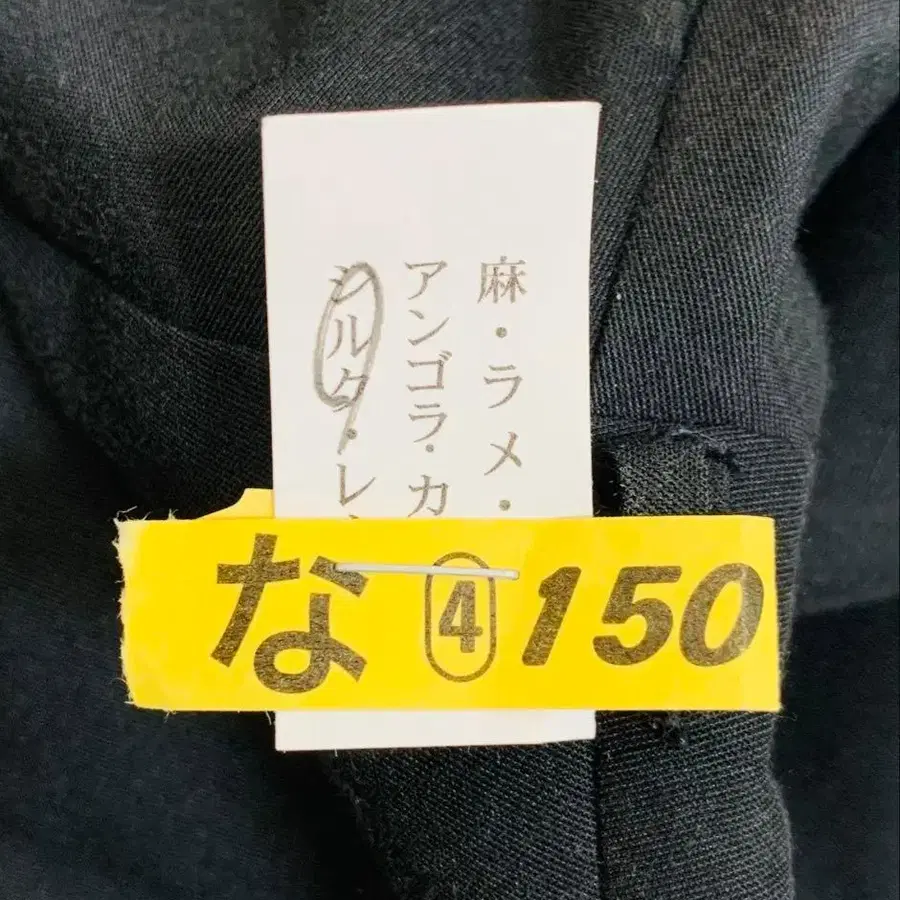 麻・ラメ・
アンゴラ・カ
シルク・レ
な ④ 150